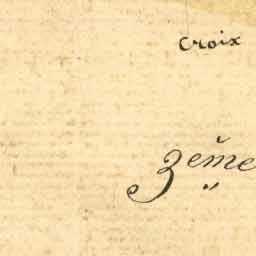 croix
3eme